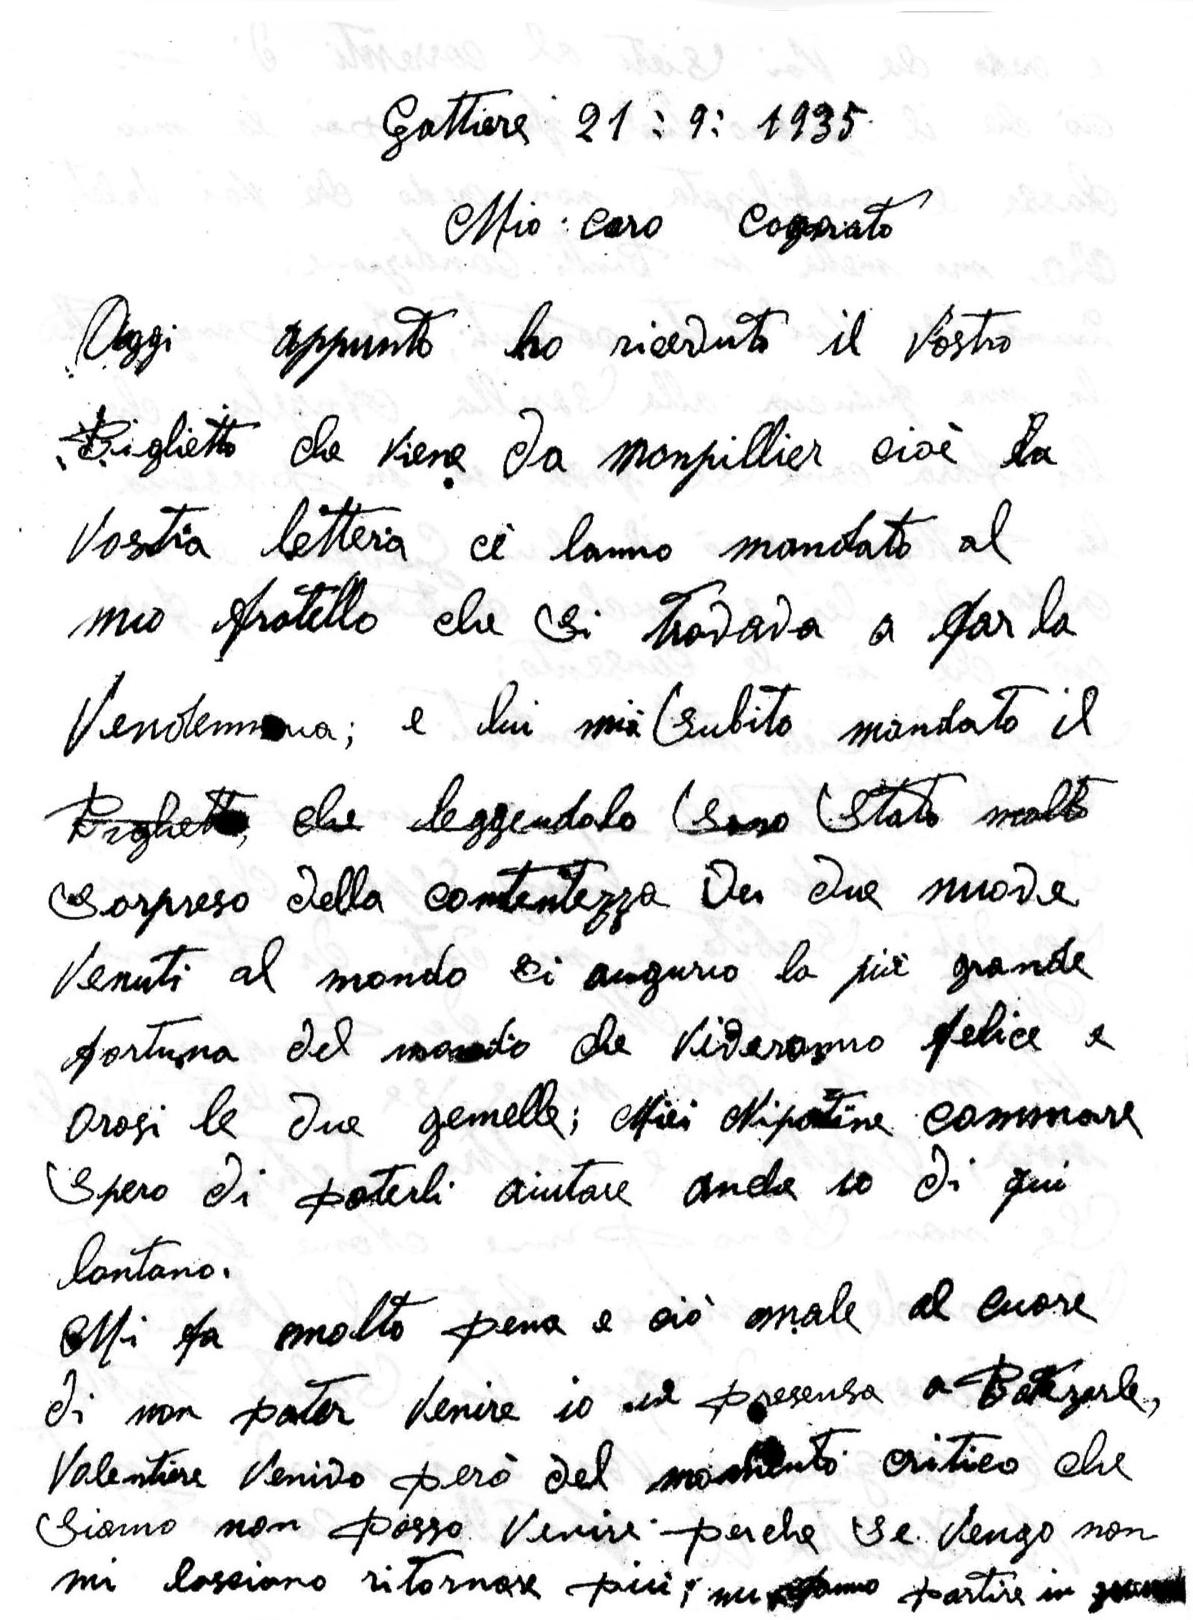 Gattiere 21 : 9 : 1935
Mio : caro Cognato
Oggi appunto ho riceduto il Vostro
Biglietto che viene da monpillier cioè la
Vostra lettera cè lanno mandato al
mio fratello che si trovava a far la
Vendemmia; e lui mià subito mandato il
Biglietto, che leggendolo sono stato molto
sorpreso della contentezza Dei due nuove
Venuti al mondo ci augurio la più grande
fortuna del mondo che viveranno felice e
orosi le due gemelle; Miei Nipotine commare
spero di poterli aiutare anche io di qui
lontano.
Mi fa molto pena e ciò male al cuore
di non poter Venire io in presensa a Batezarle,
Valentiere Venivo però del momento critico che
siamo non posso Venire perche se Vengo non
mi lasciano ritornare più; mi fanno partire in